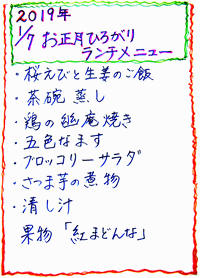 2019年
1/7 お正月ひろがり
ランチメニュー
・桜えびと生姜のご飯
・茶碗蒸し
・鶏の幽庵焼き
・五色なます
・ブロッコリーサラダ
・さつま芋の煮物
・清し汁
果物「紅まどんな」